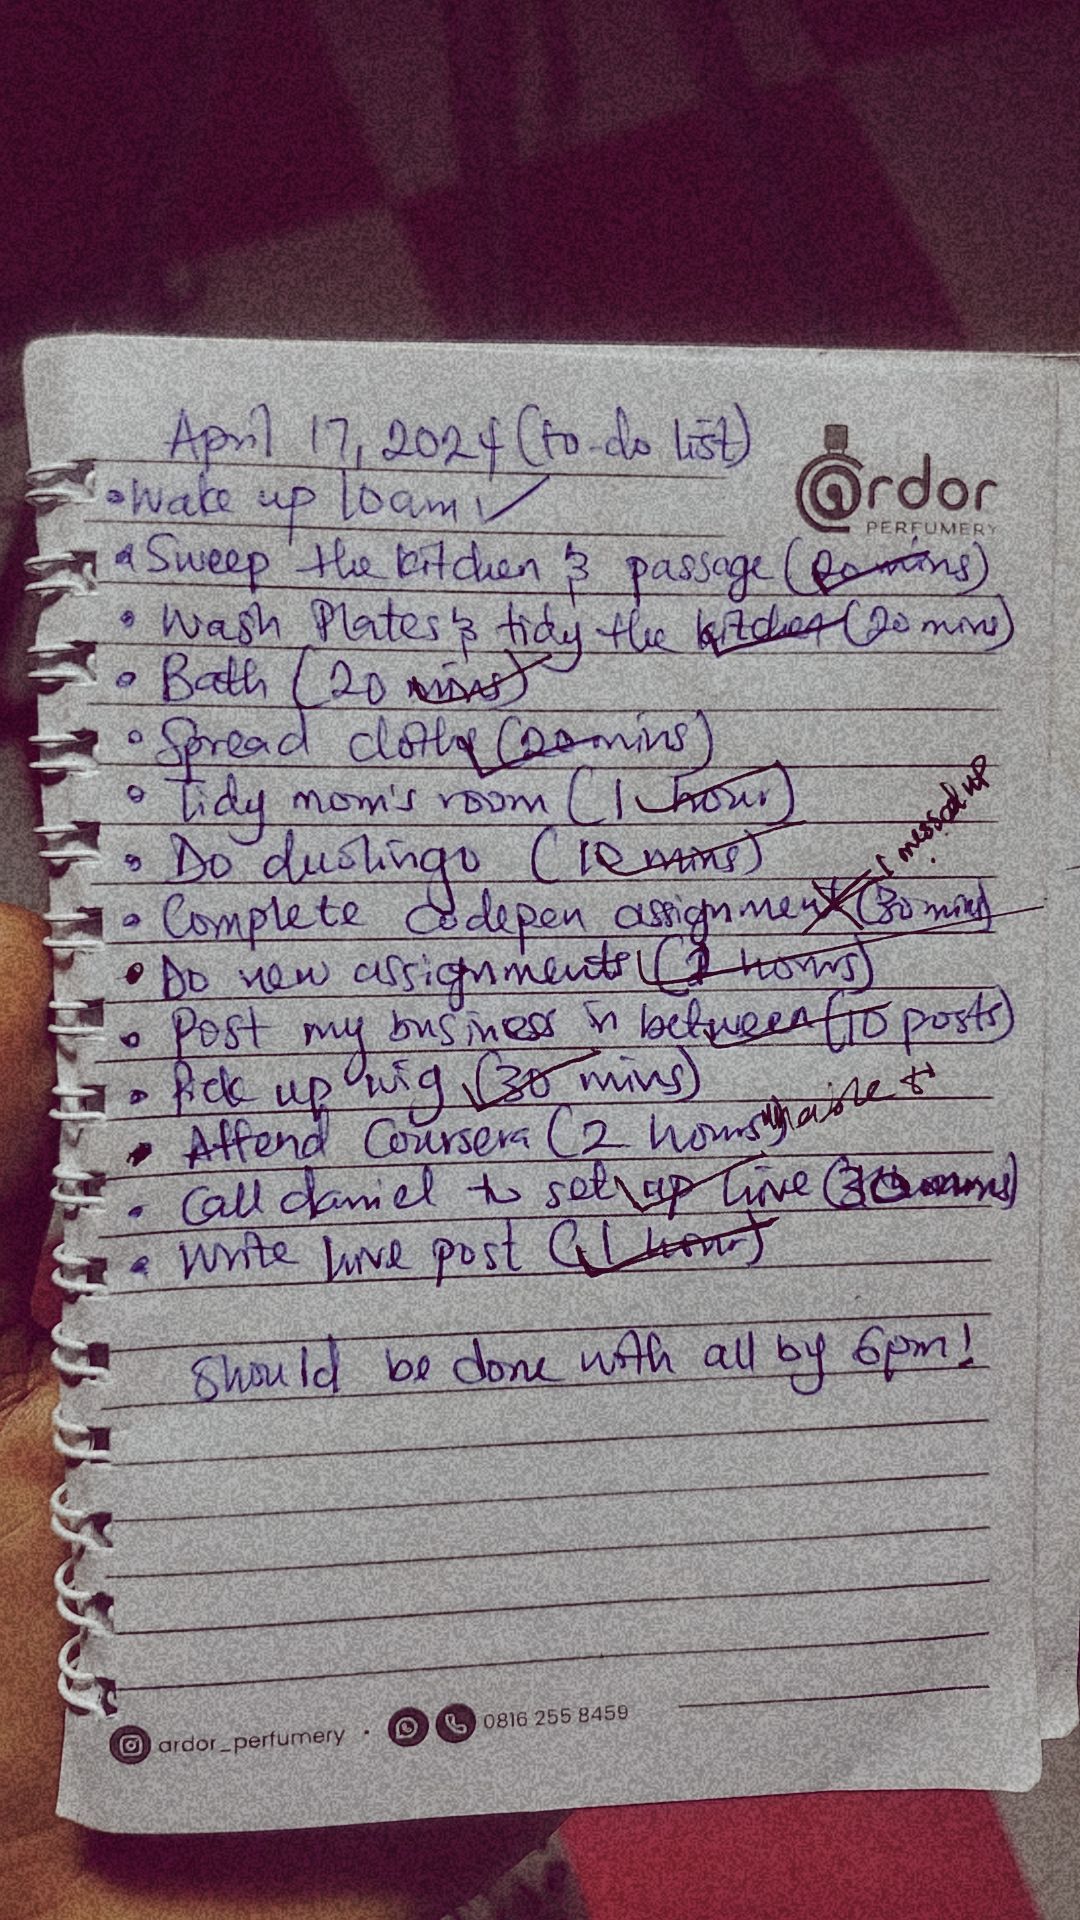 April 17, 2024 (to-do list)
ardor
PERFUMERY
• Wake up 10am ✓
• Sweep the kitchen & passage (20 mins)
• Wash Plates & tidy the kitchen (20 mins)
• Bath (20 mins)
• Spread cloths (20 mins)
• Tidy mom's room (1 hour)
• Do duolingo (10 mins)
I messed up
• Complete codepen assignment (30 mins)
• Do new assignments (2 hours)
• Post my business in between (10 posts)
• Pick up wig (30 mins)
• Attend Coursera (2 hours)
• Call daniel to set up hive (30 mins)
• Write hive post (1 hour)
Should be done with all by 6pm!
ardor_perfumery • 0816 255 8459